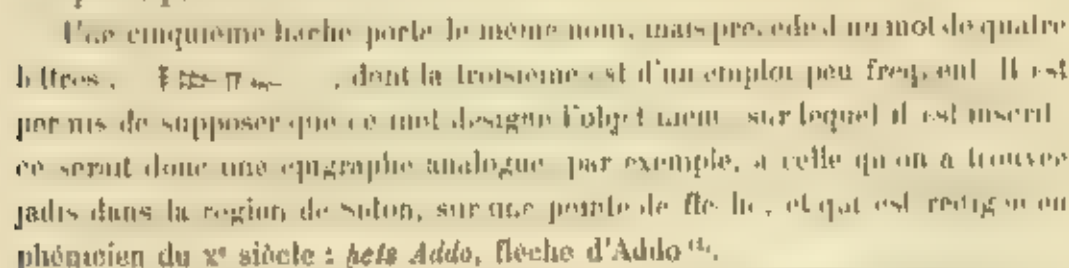 Une cinquième hache porte le même nom, mais précédé d'un mot de quatre
lettres, , dont la troisième est d'un emploi peu fréquent. Il est
permis de supposer que ce mot désigne l'objet même sur lequel il est inscrit
ce serait donc une épigraphe analogue par exemple, à celle qu'on a trouvée
jadis dans la région de Sidon, sur une pointe de flèche, et qui est rédigée en
phénicien du xᵉ siècle : hets Addo, flèche d'Addo